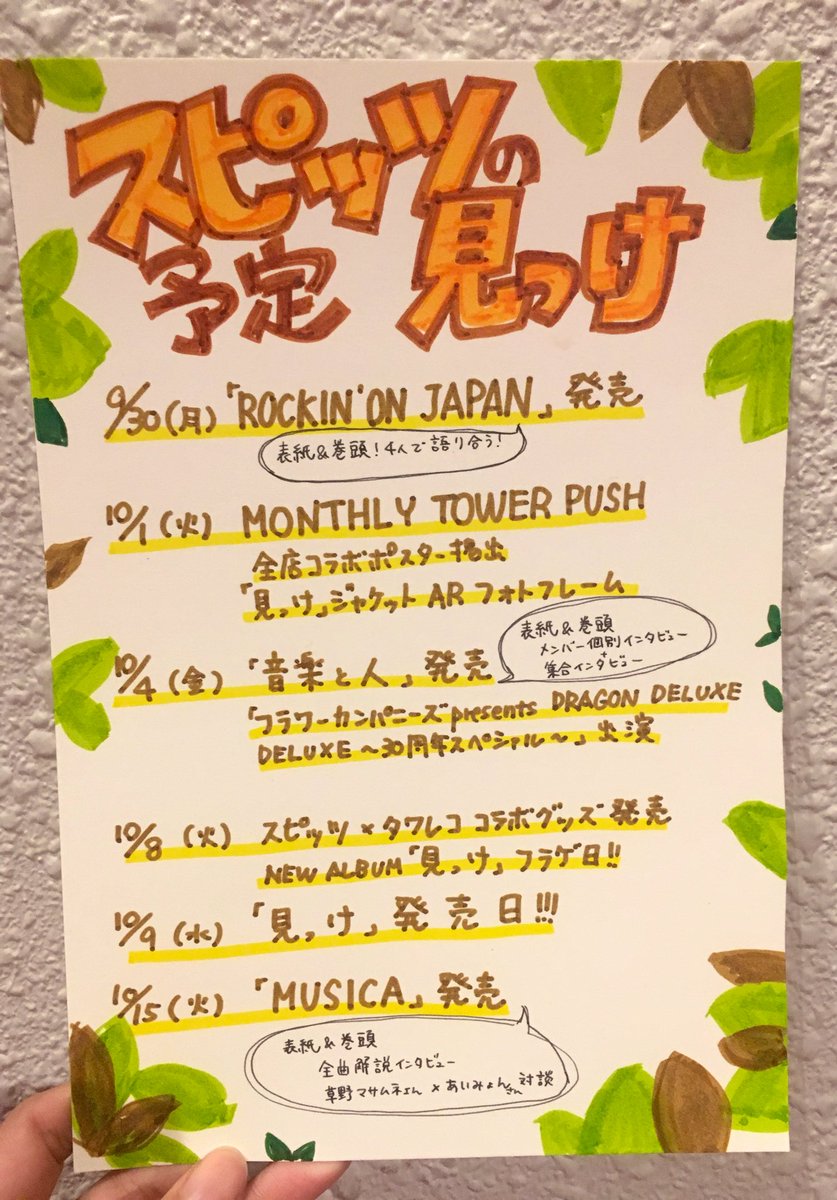 スピッツの
予定 見っけ
9/30(月)「ROCKIN'ON JAPAN」発売
表紙&巻頭!4人で語り合う!
10/1(火) MONTHLY TOWER PUSH
全店コラボポスター掲出
「見っけ」ジャケット AR フォトフレーム
10/4(金)「音楽と人」発売
表紙&巻頭
メンバー個別インタビュー
+
集合インタビュー
「フラワーカンパニーズ presents DRAGON DELUXE
DELUXE 〜30周年スペシャル〜」出演
10/8(火) スピッツ×タワレコ コラボグッズ発売
NEW ALBUM「見っけ」フラゲ日!!
10/9(水)「見っけ」発売日!!!
10/15(火)「MUSICA」発売
表紙&巻頭
全曲解説インタビュー
草野マサムネさん×あいみょんさん対談